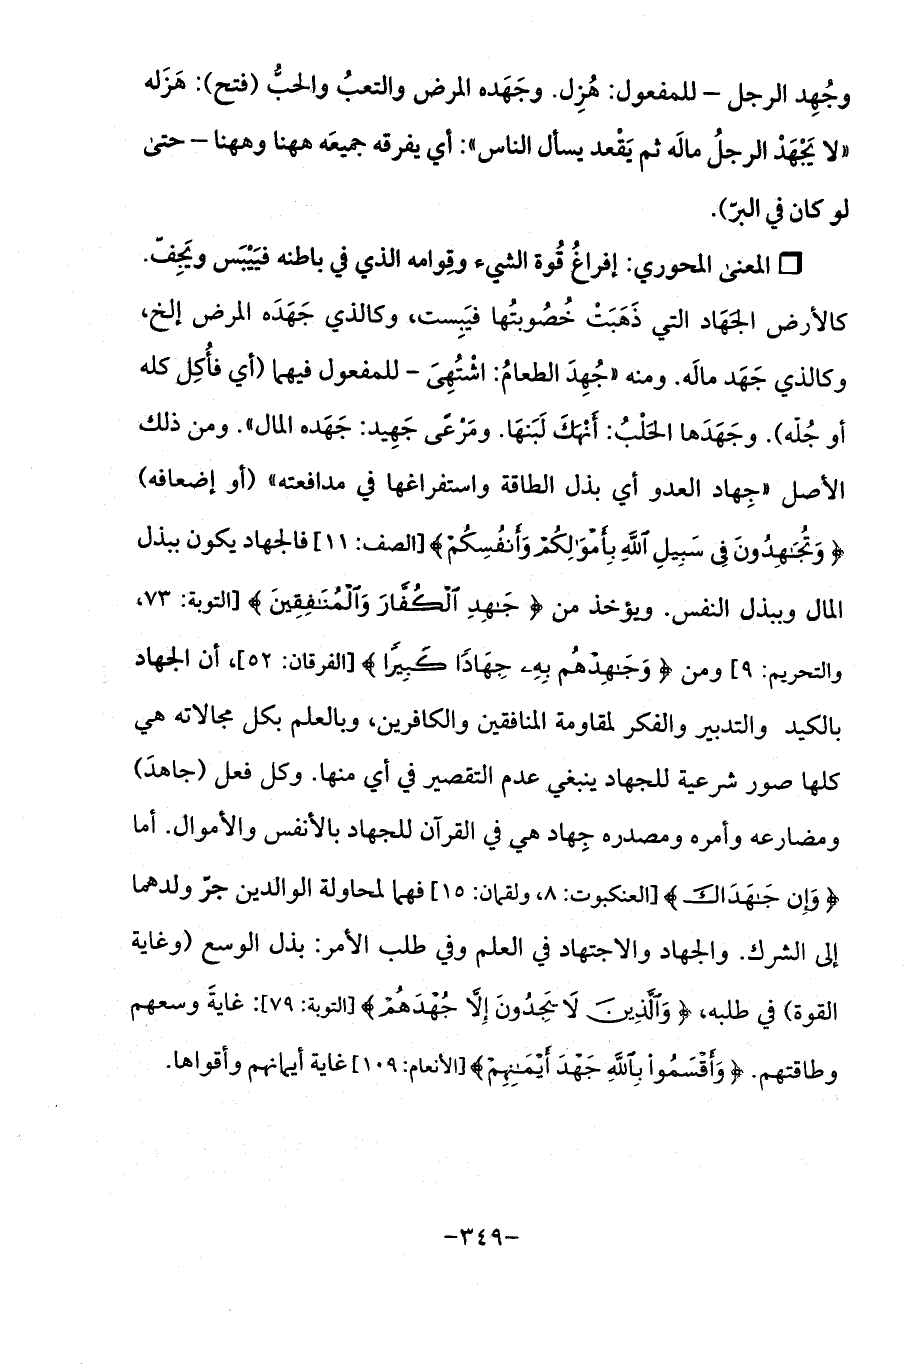 وجُهِد الرجل – للمفعول: هُزِل. وجَهَده المرض والتعبُ والحبُّ (فتح): هَزَله
«لا يَجْهَدْ الرجلُ مالَه ثم يَقْعد يسأل الناس»: أي يفرقه جميعَه ههنا وههنا – حتىٰ
لو كان في البرّ).
❑ المعنىٰ المحوري: إفراغُ قُوة الشيء وقِوامه الذي في باطنه فيَيْبَس ويَجِفّ.
كالأرض الجَهَاد التي ذَهَبَتْ خُصُوبتُها فيَبِست، وكالذي جَهَدَه المرض إلخ،
وكالذي جَهَد مالَه. ومنه «جُهِدَ الطعامُ: اشْتُهِىَ – للمفعول فيهما (أي فأُكِل كله
أو جُلّه). وجَهَدَها الحَلْبُ: أَنْهَكَ لَبَنهَا. ومَرْعًى جَهِيد: جَهَده المال». ومن ذلك
الأصل «جِهاد العدو أي بذل الطاقة واستفراغها في مدافعته» (أو إضعافه)
﴿وَتُجَـٰهِدُونَ فِى سَبِيلِ ٱللَّهِ بِأَمْوَٰلِكُمْ وَأَنفُسِكُمْ﴾ [الصف: ١١] فالجهاد يكون ببذل
المال وببذل النفس. ويؤخذ من ﴿جَـٰهِدِ ٱلْكُفَّارَ وَٱلْمُنَـٰفِقِينَ﴾ [التوبة: ٧٣،
والتحريم: ٩] ومن ﴿وَجَـٰهِدْهُم بِهِۦ جِهَادًا كَبِيرًا﴾ [الفرقان: ٥٢]، أن الجهاد
بالكيد والتدبير والفكر لمقاومة المنافقين والكافرين، وبالعلم بكل مجالاته هي
كلها صور شرعية للجهاد ينبغي عدم التقصير في أي منها. وكل فعل (جاهدَ)
ومضارعه وأمره ومصدره جِهاد هي في القرآن للجهاد بالأنفس والأموال. أما
﴿وَإِن جَـٰهَدَاكَ﴾ [العنكبوت: ٨، ولقمان: ١٥] فهما لمحاولة الوالدين جرّ ولدهما
إلى الشرك. والجهاد والاجتهاد في العلم وفي طلب الأمر: بذل الوسع (وغاية
القوة) في طلبه، ﴿وَٱلَّذِينَ لَا يَجِدُونَ إِلَّا جُهْدَهُمْ﴾ [التوبة: ٧٩]: غايةَ وسعهم
وطاقتهم. ﴿وَأَقْسَمُوا۟ بِٱللَّهِ جَهْدَ أَيْمَـٰنِهِمْ﴾ [الأنعام: ١٠٩] غاية أيمانهم وأقواها.
-٣٤٩-